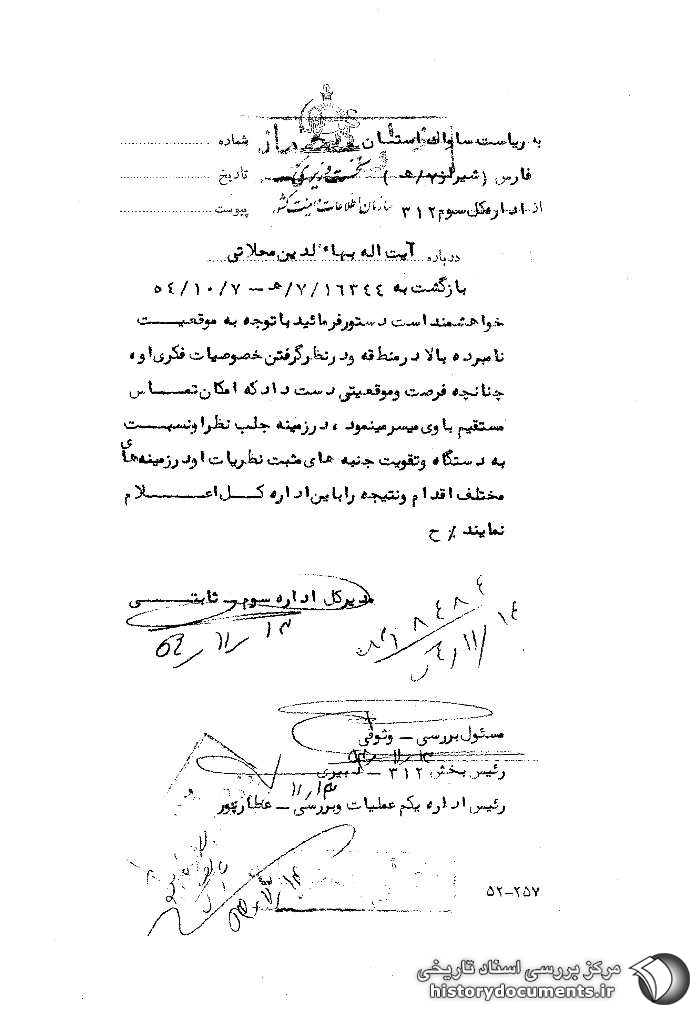 به ریاست ساواک استان شماره
فارس (شیراز ۷/هـ) نخست وزیری تاریخ
از اداره کل سوم ۳۱۲ سازمان اطلاعات و امنیت کشور پیوست
درباره آیت اله بهاء الدین محلاتی
بازگشت به ۱۶۳۴۴/۷/هـ - ۵۴/۱۰/۷
خواهشمند است دستور فرمائید با توجه به موقعیت
نامبرده بالا در منطقه و در نظر گرفتن خصوصیات فکری او،
چنانچه فرصت و موقعیتی دست داد که امکان تماس
مستقیم با وی میسر مینمود، در زمینه جلب نظر او نسبت
به دستگاه و تقویت جنبه های مثبت نظریات او در زمینه های
مختلف اقدام و نتیجه را باین اداره کل اعلام
نمایند ٪ ح
مدیرکل اداره سوم - ثابتی
۵۴/۱۱/۱۳
۵۴/۱۱/۱۴
مسئول بررسی - وثوقی
رئیس بخش ۳۱۲ - دبیری
۱۱/۱۳
رئیس اداره یکم عملیات و بررسی - عطارپور
۵۲-۲۵۷
مرکز بررسی اسناد تاریخی
historydocuments.ir